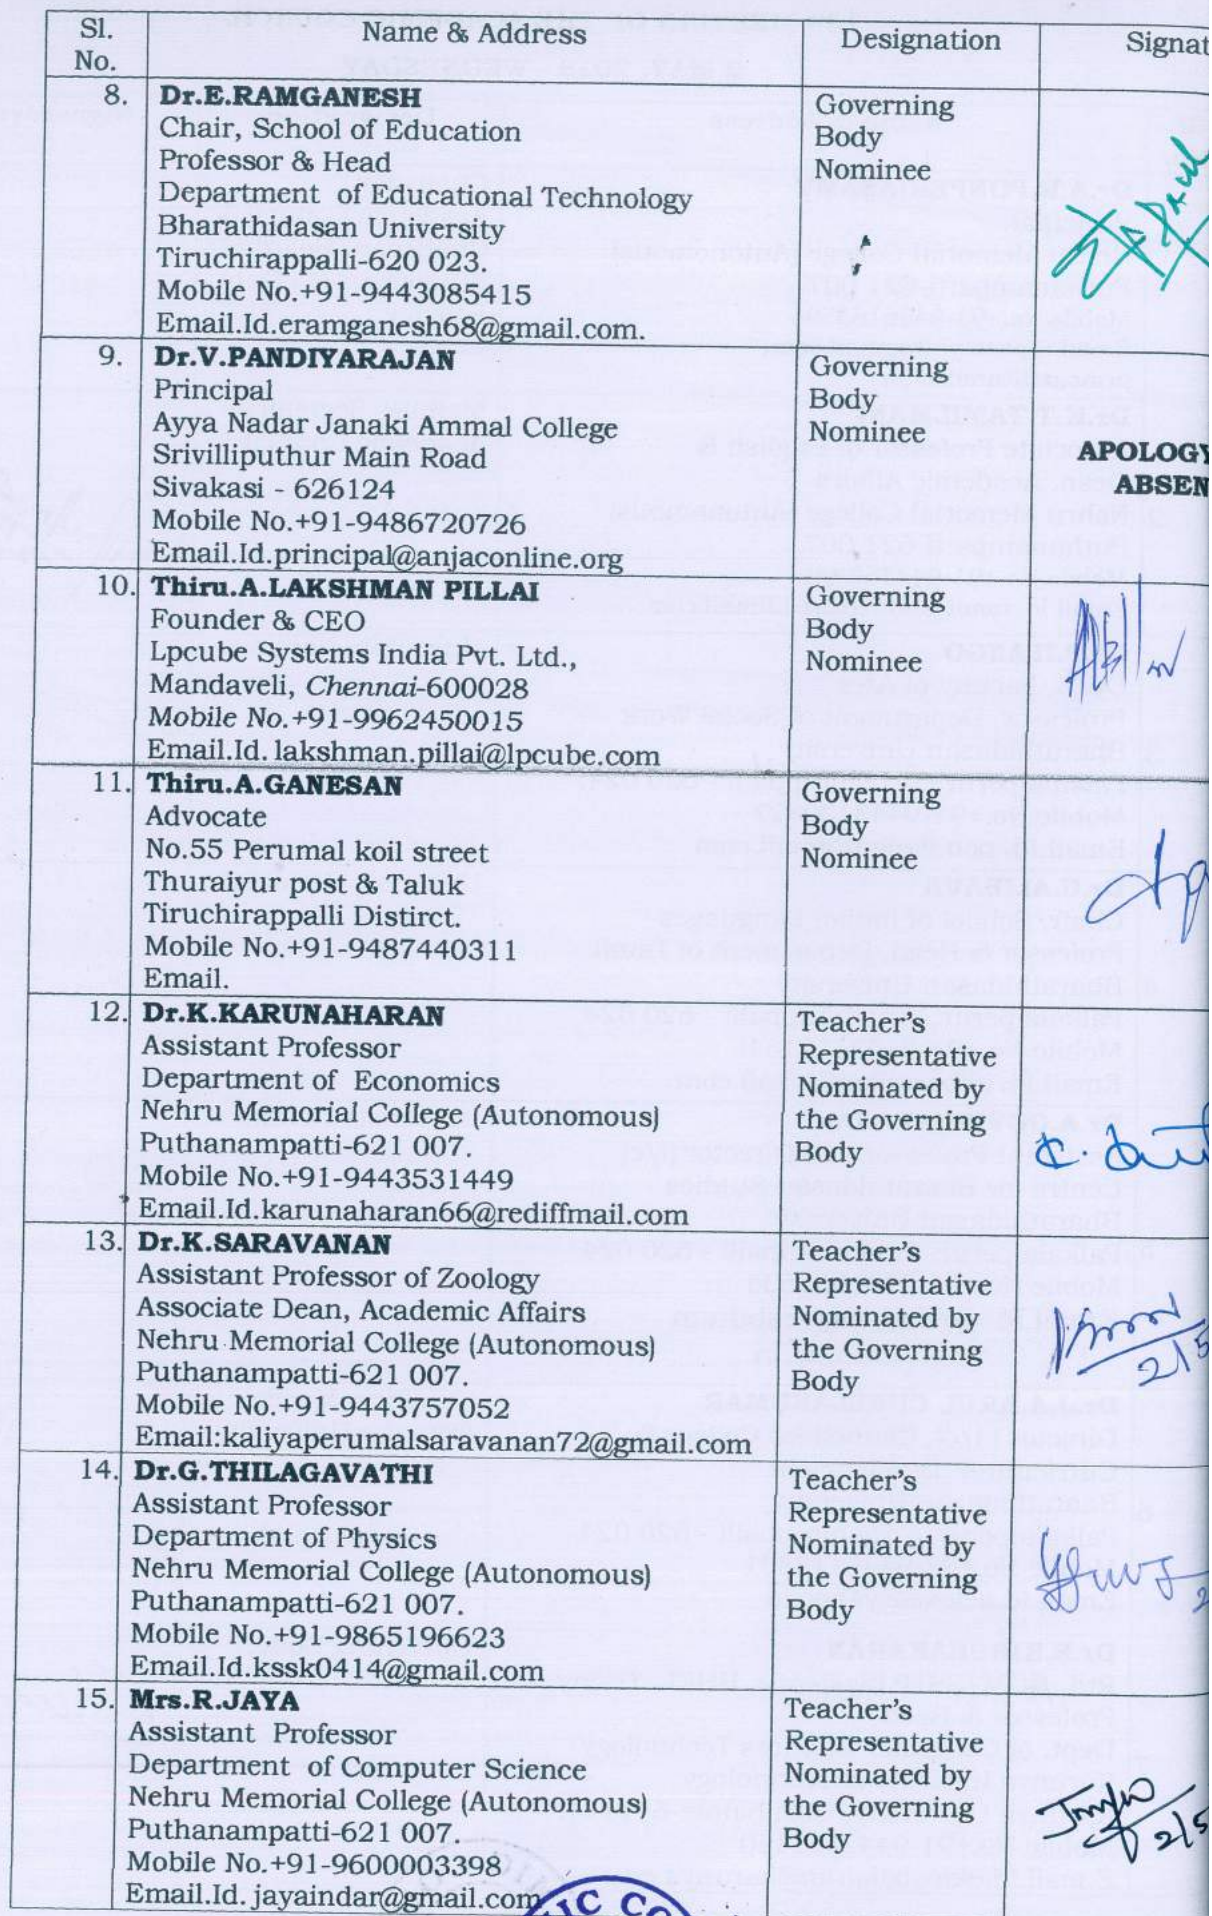 Sl. No.
Name & Address
Designation
Signat
8.
Dr.E.RAMGANESH
Chair, School of Education
Professor & Head
Department of Educational Technology
Bharathidasan University
Tiruchirappalli-620 023.
Mobile No.+91-9443085415
Email.Id.eramganesh68@gmail.com.
Governing
Body
Nominee
9.
Dr.V.PANDIYARAJAN
Principal
Ayya Nadar Janaki Ammal College
Srivilliputhur Main Road
Sivakasi - 626124
Mobile No.+91-9486720726
Email.Id.principal@anjaconline.org
Governing
Body
Nominee
APOLOGY
ABSEN
10.
Thiru.A.LAKSHMAN PILLAI
Founder & CEO
Lpcube Systems India Pvt. Ltd.,
Mandaveli, Chennai-600028
Mobile No.+91-9962450015
Email.Id. lakshman.pillai@lpcube.com
Governing
Body
Nominee
11.
Thiru.A.GANESAN
Advocate
No.55 Perumal koil street
Thuraiyur post & Taluk
Tiruchirappalli Distirct.
Mobile No.+91-9487440311
Email.
Governing
Body
Nominee
12.
Dr.K.KARUNAHARAN
Assistant Professor
Department of Economics
Nehru Memorial College (Autonomous)
Puthanampatti-621 007.
Mobile No.+91-9443531449
Email.Id.karunaharan66@rediffmail.com
Teacher's
Representative
Nominated by
the Governing
Body
13.
Dr.K.SARAVANAN
Assistant Professor of Zoology
Associate Dean, Academic Affairs
Nehru Memorial College (Autonomous)
Puthanampatti-621 007.
Mobile No.+91-9443757052
Email:kaliyaperumalsaravanan72@gmail.com
Teacher's
Representative
Nominated by
the Governing
Body
2/5
14.
Dr.G.THILAGAVATHI
Assistant Professor
Department of Physics
Nehru Memorial College (Autonomous)
Puthanampatti-621 007.
Mobile No.+91-9865196623
Email.Id.kssk0414@gmail.com
Teacher's
Representative
Nominated by
the Governing
Body
15.
Mrs.R.JAYA
Assistant Professor
Department of Computer Science
Nehru Memorial College (Autonomous)
Puthanampatti-621 007.
Mobile No.+91-9600003398
Email.Id. jayaindar@gmail.com
Teacher's
Representative
Nominated by
the Governing
Body
2/5
IC CO